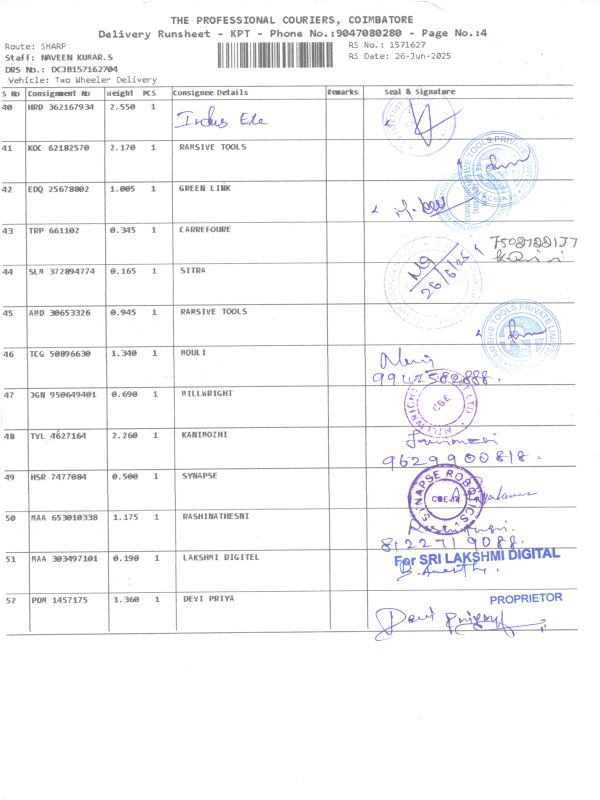 THE PROFESSIONAL COURIERS, COIMBATORE
Delivery Runsheet - KPT - Phone No.:9047080280 - Page No.:4
Route: SHARP RS No.: 1571627
Staff: NAVEEN KUMAR.S RS Date: 26-Jun-2025
DRS No.: DCJB157162704
Vehicle: Two Wheeler Delivery
S No Consignment No Weight PCS Consignee Details Remarks Seal & Signature
40 HRD 362167934 2.550 1 Indus Ele
41 KOC 62182570 2.170 1 RAMSIVE TOOLS
42 EDQ 25678802 1.005 1 GREEN LINK
43 TRP 661102 0.345 1 CARREFOURE
44 SLM 372894774 0.165 1 SITRA 26/6/25
45 AMD 30653326 0.945 1 RAMSIVE TOOLS
RAMSIVE TOOLS PRIVATE LIMITED
46 TCG 50896630 1.340 1 MOULI
9942582888.
47 JGN 950649401 0.690 1 MILLWRIGHT
CBE
48 TVL 4627164 2.260 1 KANIMOZHI
9629900818.
49 HSR 7477084 0.500 1 SYNAPSE
SYNAPSE ROBOTICS
50 MAA 653010338 1.175 1 RASHINATHESNI
8122719088.
51 MAA 303497101 0.190 1 LAKSHMI DIGITEL
For SRI LAKSHMI DIGITAL
52 PDM 1457175 1.360 1 DEVI PRIYA
PROPRIETOR
Devi priya